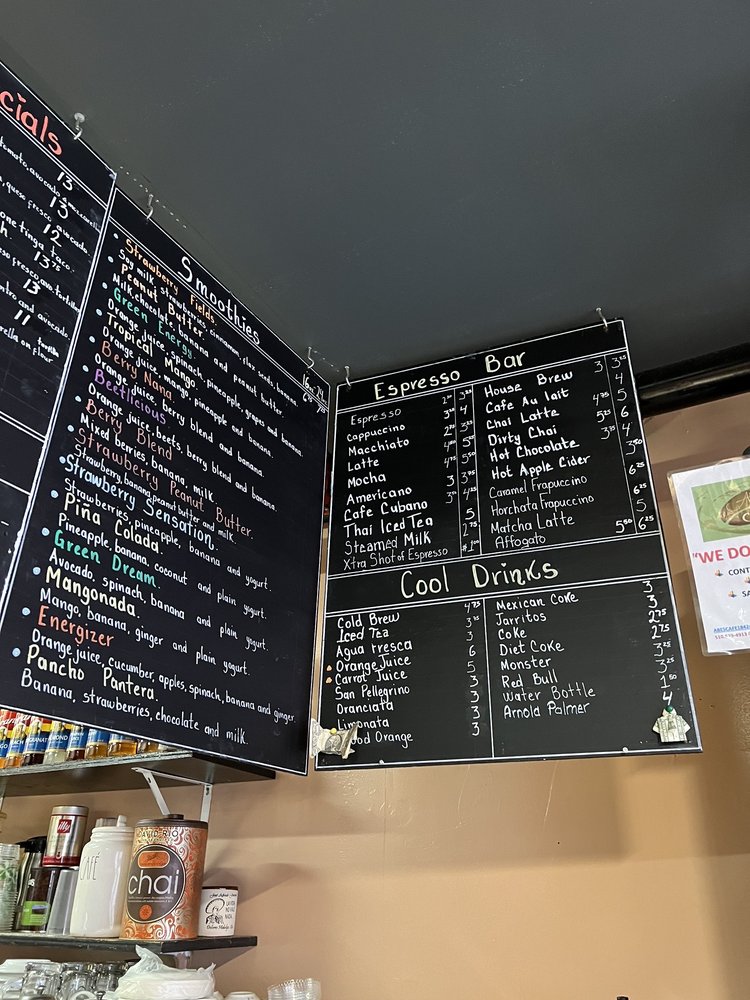 cials
tomato, avocado
13
queso fresco avocado.
13
12
one tinga taco.
13.75
queso fresco avo. tortilla
13
and avocado
11 tortilla
on flour
Smoothies
16oz
• Strawberry Fields.
Soy milk, strawberries, cinnamon, chia seeds, banana.
• Peanut Butter.
Milk chocolate, banana and peanut butter.
• Green Energy.
Orange juice, spinach, pineapple, grapes and banana.
• Tropical Mango
Orange juice, mango, pineapple and banana.
• Berry Nana.
Orange juice, berry blend and banana.
• Beetlicious
Orange juice, beets, berry blend and banana.
• Berry Blend
Mixed berries banana, milk.
• Strawberry Peanut Butter.
Strawberry, banana, peanut butter and milk.
• Strawberry Sensation.
Strawberries, pineapple, banana and yogurt.
• Piña Colada.
Pineapple, banana, coconut and plain yogurt.
• Green Dream
Avocado, spinach, banana and plain yogurt.
• Mangonada.
Mango, banana, ginger and plain yogurt.
• Energizer
Orange juice, cucumber, apples, spinach, banana and ginger.
• Pancho Pantera.
Banana, strawberries, chocolate and milk.
Espresso Bar
Espresso
Cappuccino
Macchiato
Latte
Mocha
Americano
Cafe Cubano
Thai Iced Tea 5
Steamed Milk 2.75
Xtra Shot of Espresso $1.00
House Brew 3 3.25
Cafe Au lait 4
Chai Latte 4.75 5
Dirty Chai 5.25 6
Hot Chocolate 3.75 4
Hot Apple Cider 3.50
Caramel Frapuccino 6.25
Horchata Frapuccino 6.25
Matcha Latte 5
Affogato 5.50 6.25
Cool Drinks
Cold Brew 4.75
Iced Tea
Agua fresca 3
Orange Juice 6
Carrot Juice 5
San Pellegrino 3
Oranciata 3
Limonata 3
ood Orange 3
Mexican Coke 3
Jarritos 3
Coke 2.75
Diet Coke 2.75
Monster 3.25
Red Bull 3.25
Water Bottle 1.50
Arnold Palmer 4
"WE DO
CONT
SA
illy
CAFÉ
DAVID RIO
chai